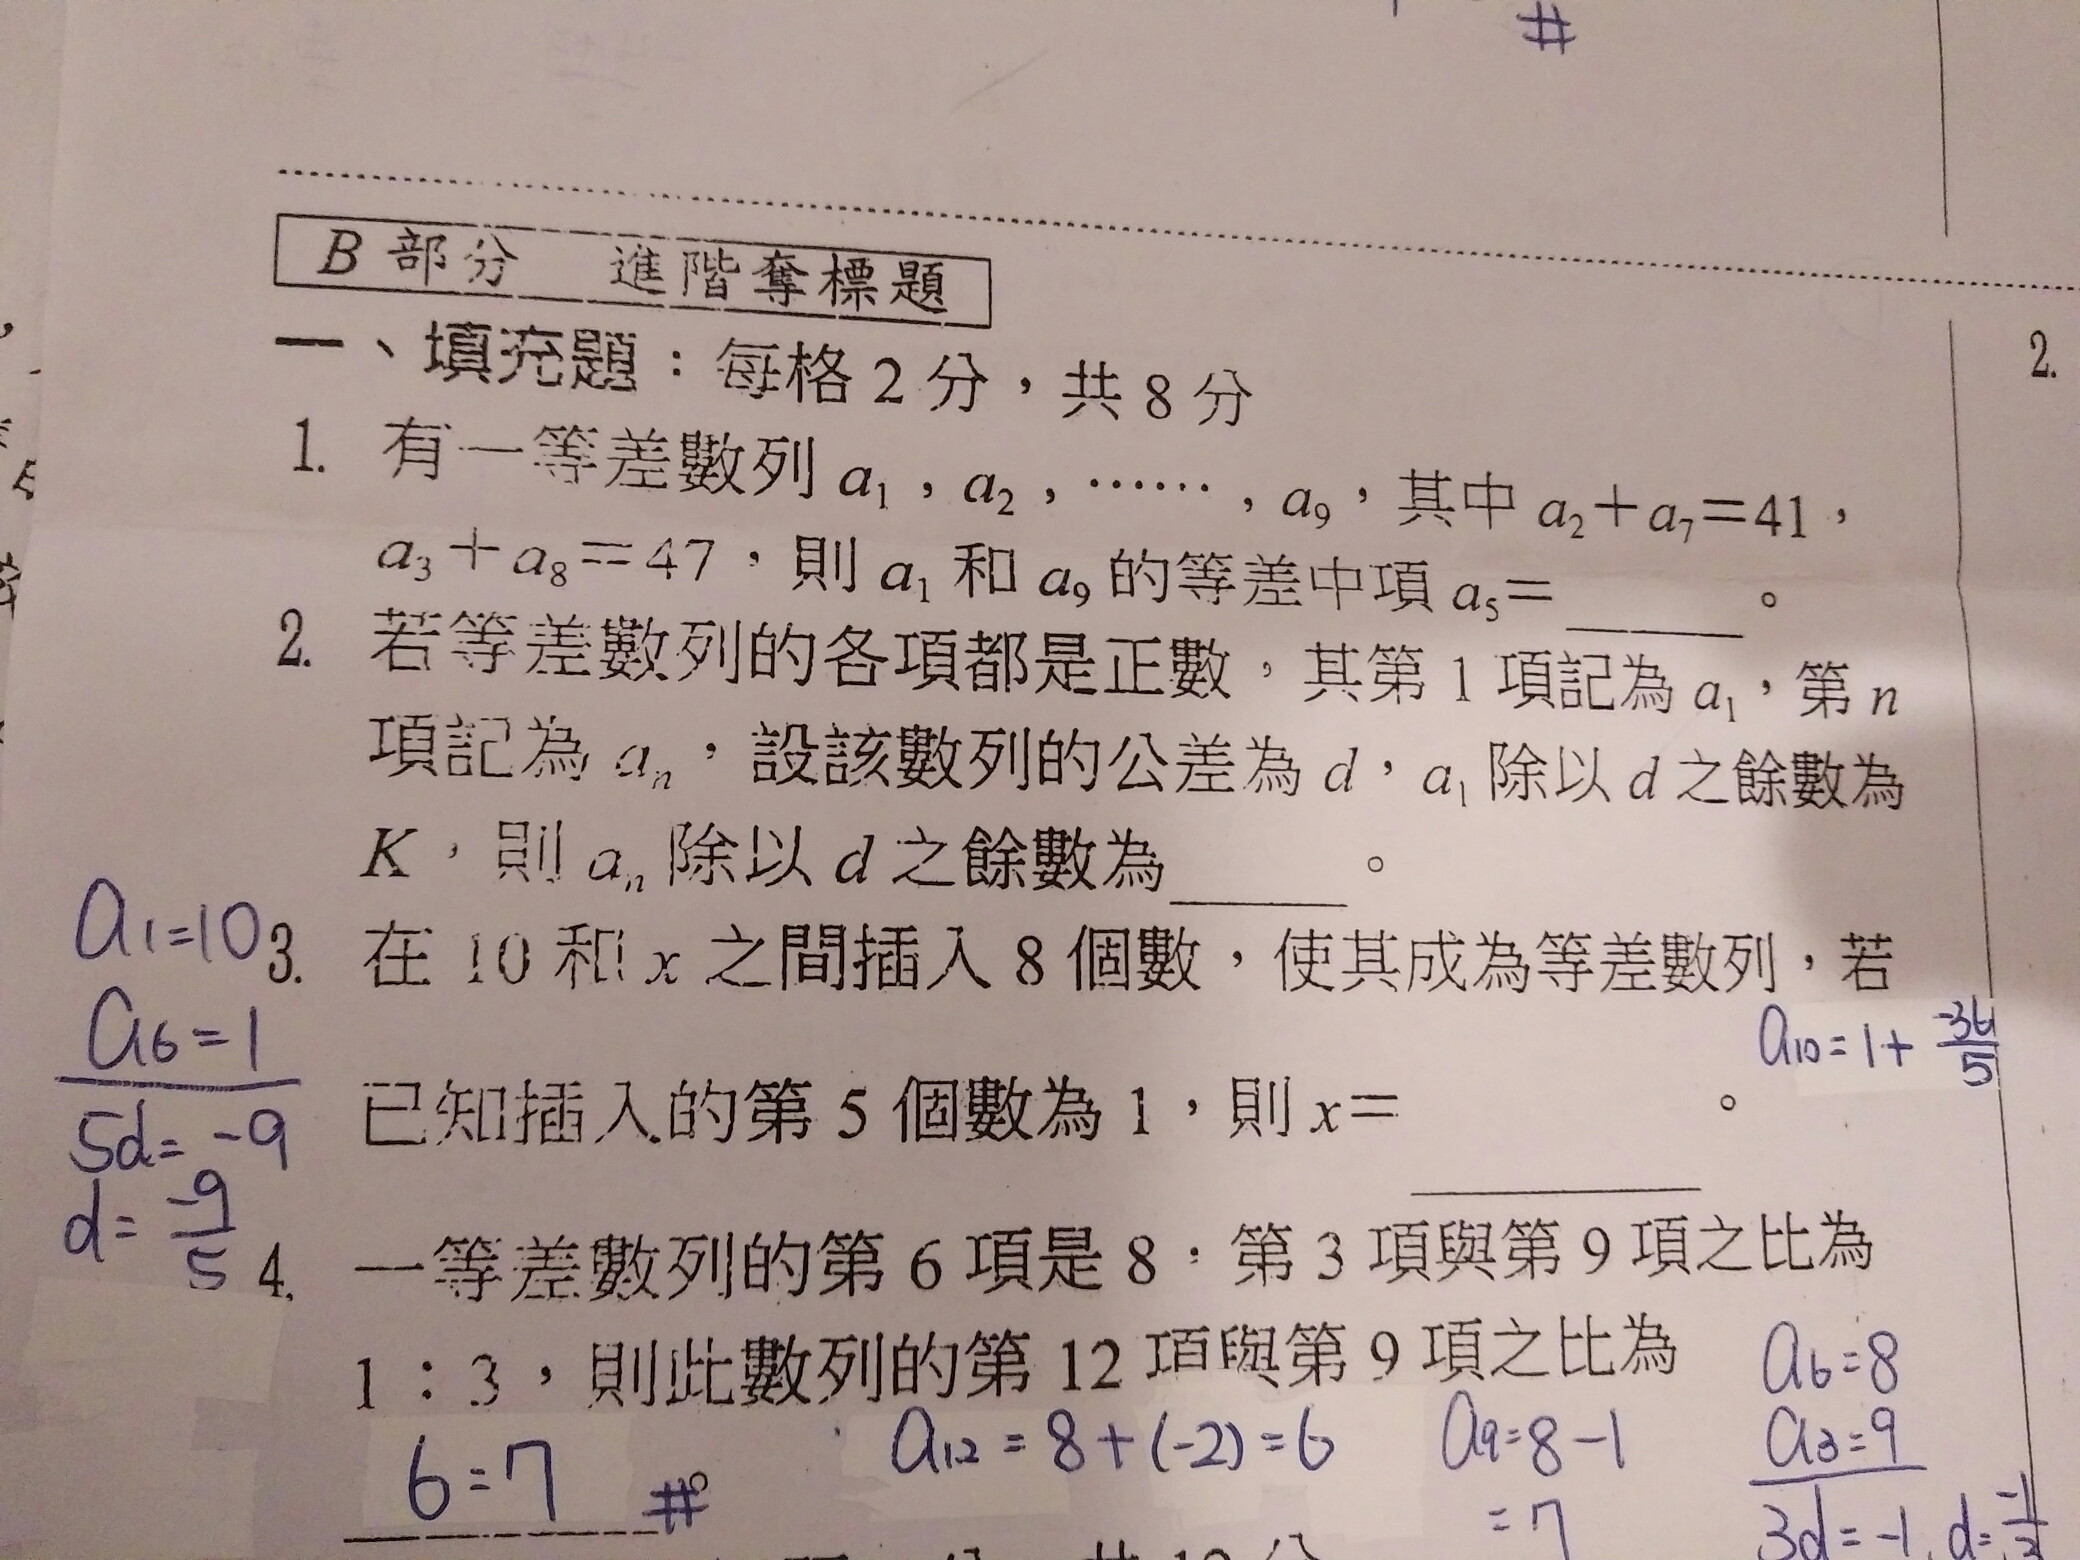 #
B 部分 進階奪標題
一、填充題：每格 2 分，共 8 分
1. 有一等差數列 a₁，a₂，……，a₉，其中 a₂＋a₇＝41，
a₃＋a₈＝47，則 a₁ 和 a₉ 的等差中項 a₅＝＿＿＿。
2. 若等差數列的各項都是正數，其第 1 項記為 a₁，第 n
項記為 aₙ，設該數列的公差為 d，a₁ 除以 d 之餘數為
K，則 aₙ 除以 d 之餘數為＿＿＿。
3. 在 10 和 x 之間插入 8 個數，使其成為等差數列，若
已知插入的第 5 個數為 1，則 x＝＿＿＿。
a₁=10
a₆=1
5d=-9
d=-9/5
a₁₀=1+-36/5
4. 一等差數列的第 6 項是 8，第 3 項與第 9 項之比為
1：3，則此數列的第 12 項與第 9 項之比為
6:7 #。
a₁₂=8+(-2)=6
a₉=8-1
=7
a₆=8
a₃=9
3d=-1
2.